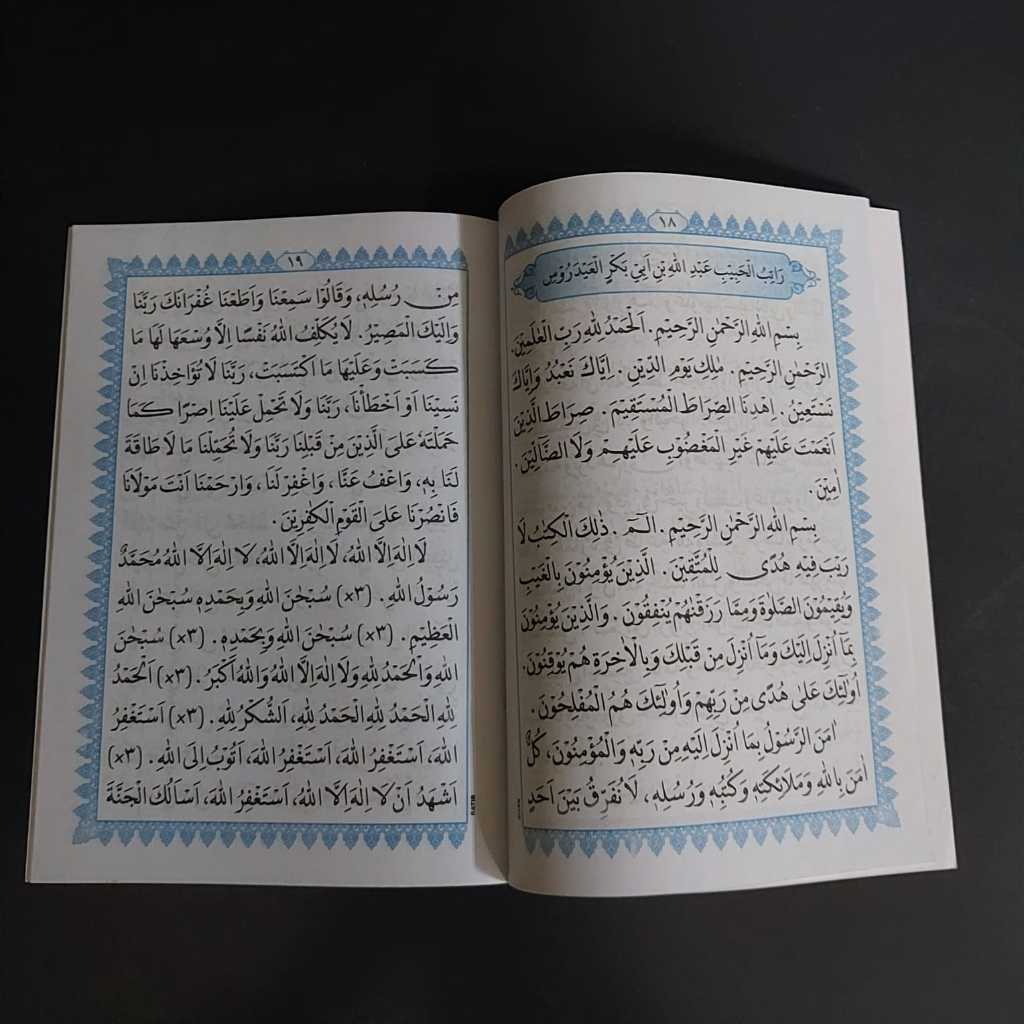 ١٨
رَاتِبُ الْحَبِيْبِ عَبْدِ اللهِ بْنِ اَبِيْ بَكْرٍ الْعَيْدَرُوْسِ
بِسْمِ اللهِ الرَّحْمٰنِ الرَّحِيْمِ. اَلْحَمْدُ لِلّٰهِ رَبِّ الْعٰلَمِيْنَ.
الرَّحْمٰنِ الرَّحِيْمِ. مٰلِكِ يَوْمِ الدِّيْنِ. اِيَّاكَ نَعْبُدُ وَاِيَّاكَ
نَسْتَعِيْنُ. اِهْدِنَا الصِّرَاطَ الْمُسْتَقِيْمَ. صِرَاطَ الَّذِيْنَ
اَنْعَمْتَ عَلَيْهِمْ غَيْرِ الْمَغْضُوْبِ عَلَيْهِمْ وَلَا الضَّآلِّيْنَ.
اٰمِيْنَ.
بِسْمِ اللهِ الرَّحْمٰنِ الرَّحِيْمِ. الٓمٓ. ذٰلِكَ الْكِتٰبُ لَا
رَيْبَ فِيْهِ هُدًى لِلْمُتَّقِيْنَ. الَّذِيْنَ يُؤْمِنُوْنَ بِالْغَيْبِ
وَيُقِيْمُوْنَ الصَّلٰوةَ وَمِمَّا رَزَقْنٰهُمْ يُنْفِقُوْنَ. وَالَّذِيْنَ يُؤْمِنُوْنَ
بِمَآ اُنْزِلَ اِلَيْكَ وَمَآ اُنْزِلَ مِنْ قَبْلِكَ وَبِالْاٰخِرَةِ هُمْ يُوْقِنُوْنَ.
اُولٰٓئِكَ عَلٰى هُدًى مِنْ رَبِّهِمْ وَاُولٰٓئِكَ هُمُ الْمُفْلِحُوْنَ.
اٰمَنَ الرَّسُوْلُ بِمَا اُنْزِلَ اِلَيْهِ مِنْ رَبِّهٖ وَالْمُؤْمِنُوْنَ، كُلٌّ
اٰمَنَ بِاللهِ وَمَلَائِكَتِهٖ وَكُتُبِهٖ وَرُسُلِهٖ، لَا نُفَرِّقُ بَيْنَ اَحَدٍ
١٩
مِنْ رُسُلِهٖ، وَقَالُوْا سَمِعْنَا وَاَطَعْنَا غُفْرَانَكَ رَبَّنَا
وَاِلَيْكَ الْمَصِيْرُ. لَا يُكَلِّفُ اللهُ نَفْسًا اِلَّا وُسْعَهَا لَهَا مَا
كَسَبَتْ وَعَلَيْهَا مَا اكْتَسَبَتْ، رَبَّنَا لَا تُؤَاخِذْنَا اِنْ
نَسِيْنَا اَوْ اَخْطَأْنَا، رَبَّنَا وَلَا تَحْمِلْ عَلَيْنَا اِصْرًا كَمَا
حَمَلْتَهٗ عَلَى الَّذِيْنَ مِنْ قَبْلِنَا رَبَّنَا وَلَا تُحَمِّلْنَا مَا لَا طَاقَةَ
لَنَا بِهٖ، وَاعْفُ عَنَّا، وَاغْفِرْ لَنَا، وَارْحَمْنَا اَنْتَ مَوْلَانَا
فَانْصُرْنَا عَلَى الْقَوْمِ الْكٰفِرِيْنَ.
لَا اِلٰهَ اِلَّا اللهُ، لَا اِلٰهَ اِلَّا اللهُ، لَا اِلٰهَ اِلَّا اللهُ مُحَمَّدٌ
رَسُوْلُ اللهِ. (×٣) سُبْحٰنَ اللهِ وَبِحَمْدِهٖ سُبْحٰنَ اللهِ
الْعَظِيْمِ. (×٣) سُبْحٰنَ اللهِ وَبِحَمْدِهٖ. (×٣) سُبْحٰنَ
اللهِ وَالْحَمْدُ لِلّٰهِ وَلَا اِلٰهَ اِلَّا اللهُ وَاللهُ اَكْبَرُ. (×٣) اَلْحَمْدُ
لِلّٰهِ الْحَمْدُ لِلّٰهِ الْحَمْدُ لِلّٰهِ، اَلشُّكْرُ لِلّٰهِ. (×٣) اَسْتَغْفِرُ
اللهَ، اَسْتَغْفِرُ اللهَ، اَسْتَغْفِرُ اللهَ، اَتُوْبُ اِلَى اللهِ. (×٣)
اَشْهَدُ اَنْ لَا اِلٰهَ اِلَّا اللهُ، اَسْتَغْفِرُ اللهَ، اَسْاَلُكَ الْجَنَّةَ
RATIB